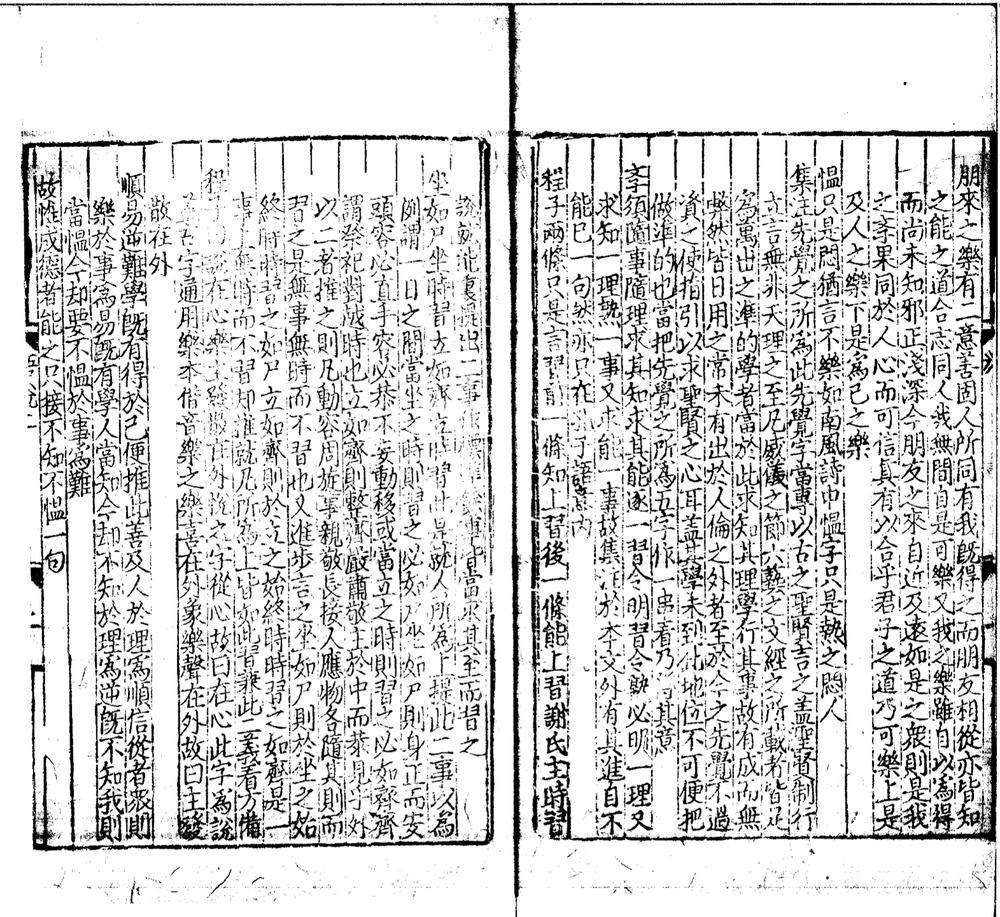 朋來之樂有二意善固人所同有我旣得之而朋友相從亦皆知
之能之道合志同人我無間自是可樂又我之樂雖自以為得
而尚未知邪正淺深今朋友之來自近及遠如是之衆則是我
之孝果同於人心而可信真有以合乎君子之道乃可樂上是
及人之樂下是為己之樂
愠只是悶猶言不樂如南風詩中愠字只是熱之悶人
集注先覺之所為此先覺字當專以古之聖賢言之盖聖賢制行
立言無非天理之至凡威儀之節六藝之文經之所載者皆足
為萬世之準的學者當於此求知其理學行其事故有成而無
弊然皆日用之常未有出於人倫之外者至於今之先覺不過
資之使指引以求聖賢之心耳盖其學未到此地位不可便把
做準的也當把先覺之所為五字作一串看乃得其意
孝須隨事隨理求其知求其能逐一習令明習令熟必明一理又
求知一理熟一事又求能一事故集注於本文外有其進自不
能已一句然亦只在於語意內
程子兩條只是言習前一條知上習後一條能上習謝氏主時習
說就能復提出二事作標皆當求其至而習之
坐如尸坐時習立如齊立時習此是就人所為上提此二事以為
例謂一日之間當坐之時則習之必如尸坐如尸則身正而安
頭容必直手容必恭不妄動移或當立之時則習之必如齊齊
謂祭祀對越時也立如齊則整齊嚴肅敬主於中而恭見于外
以二者推之則凡動容周旋事親敬長接人應物各隨其則而
習之是無事無時而不習也又進步言之坐如尸則於坐之始
終時時習之如尸立如齊則於立之始終時時習之如齊是一
事無時而不習却推就凡所為上皆如此皆兼此二義看方備
程子說在心樂主發散在外說之字從心故曰在心此字為說
字通用樂本借音樂之樂喜在外象樂聲在外故曰主發
散在外
順易逆難學旣有得於己便推此善及人於理為順信從者衆則
樂於事為易旣有學人當知今却不知於理為逆旣不知我則
當愠今却要不愠於事為難
故惟成德者能之只接不知不愠一句